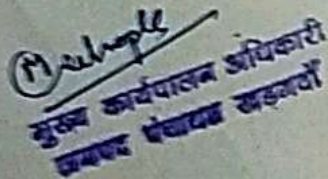 मुख्य कार्यपालन अधिकारी
जनपद पंचायत खड़गवाँ